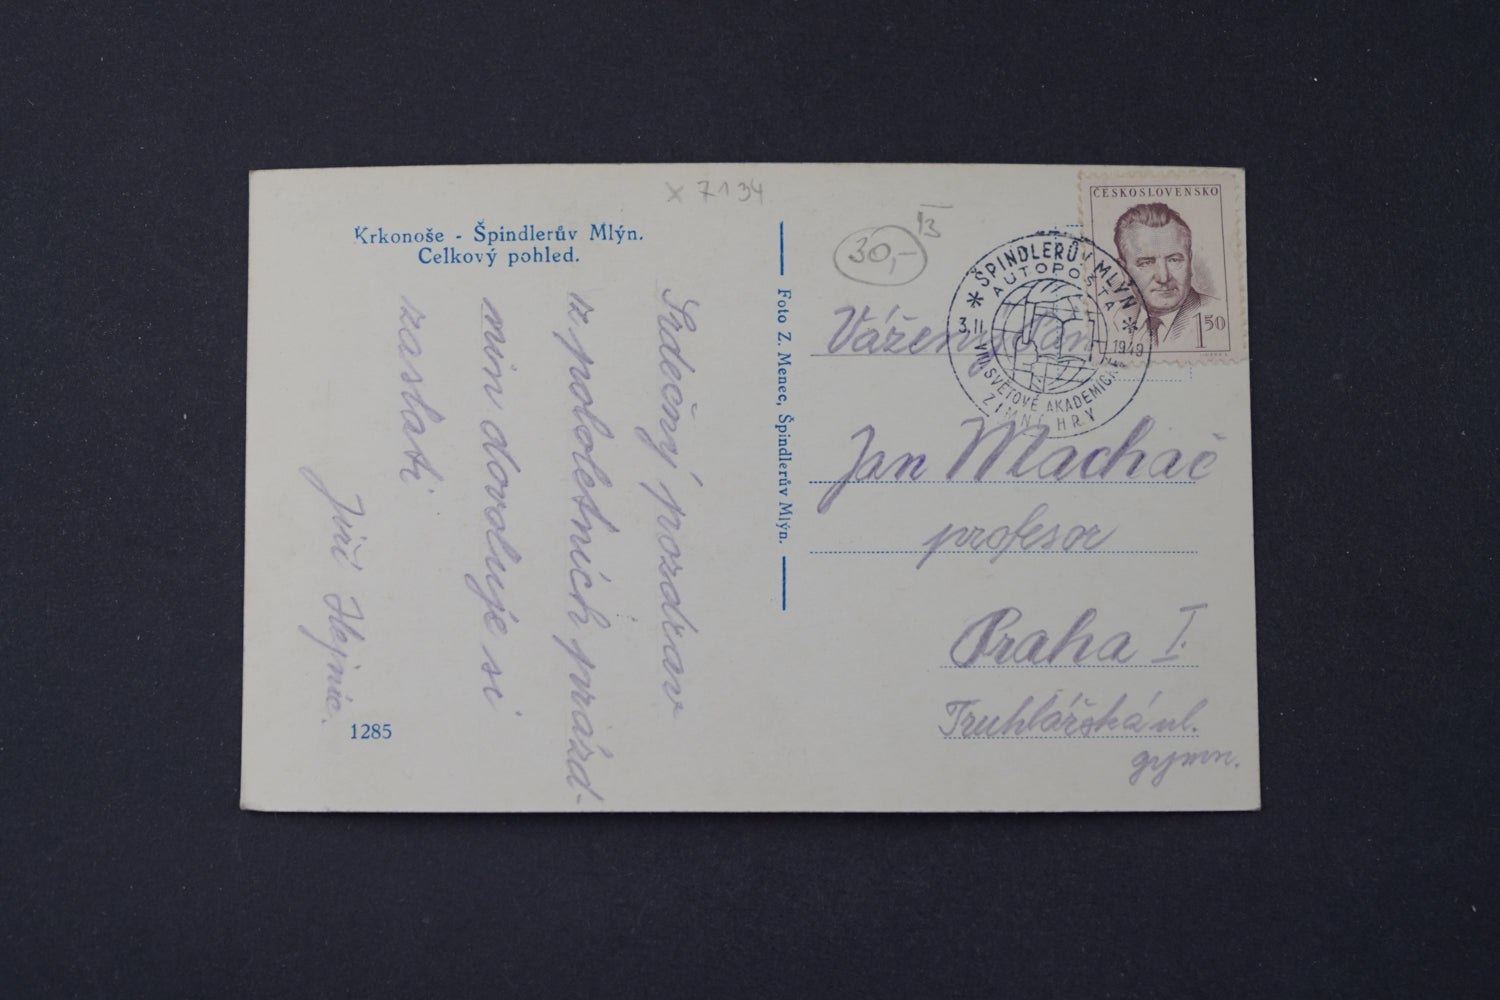 x 7134
Krkonoše - Špindlerův Mlýn.
Celkový pohled.
Srdečný pozdrav
z pololetních prázd-
nin dovoluje si
zaslati
Jiří
1285
Foto Z. Menec, Špindlerův Mlýn.
30,-
13
ČESKOSLOVENSKO
1 50
ŠPINDLERŮV MLÝN
AUTOPOŠTA
3.II 1949
VIII SVĚTOVÉ AKADEMICKÉ
ZIMNÍ HRY
Vážený pán
Jan Machač
profesor
Praha I.
Truhlářská ul.
gymn.